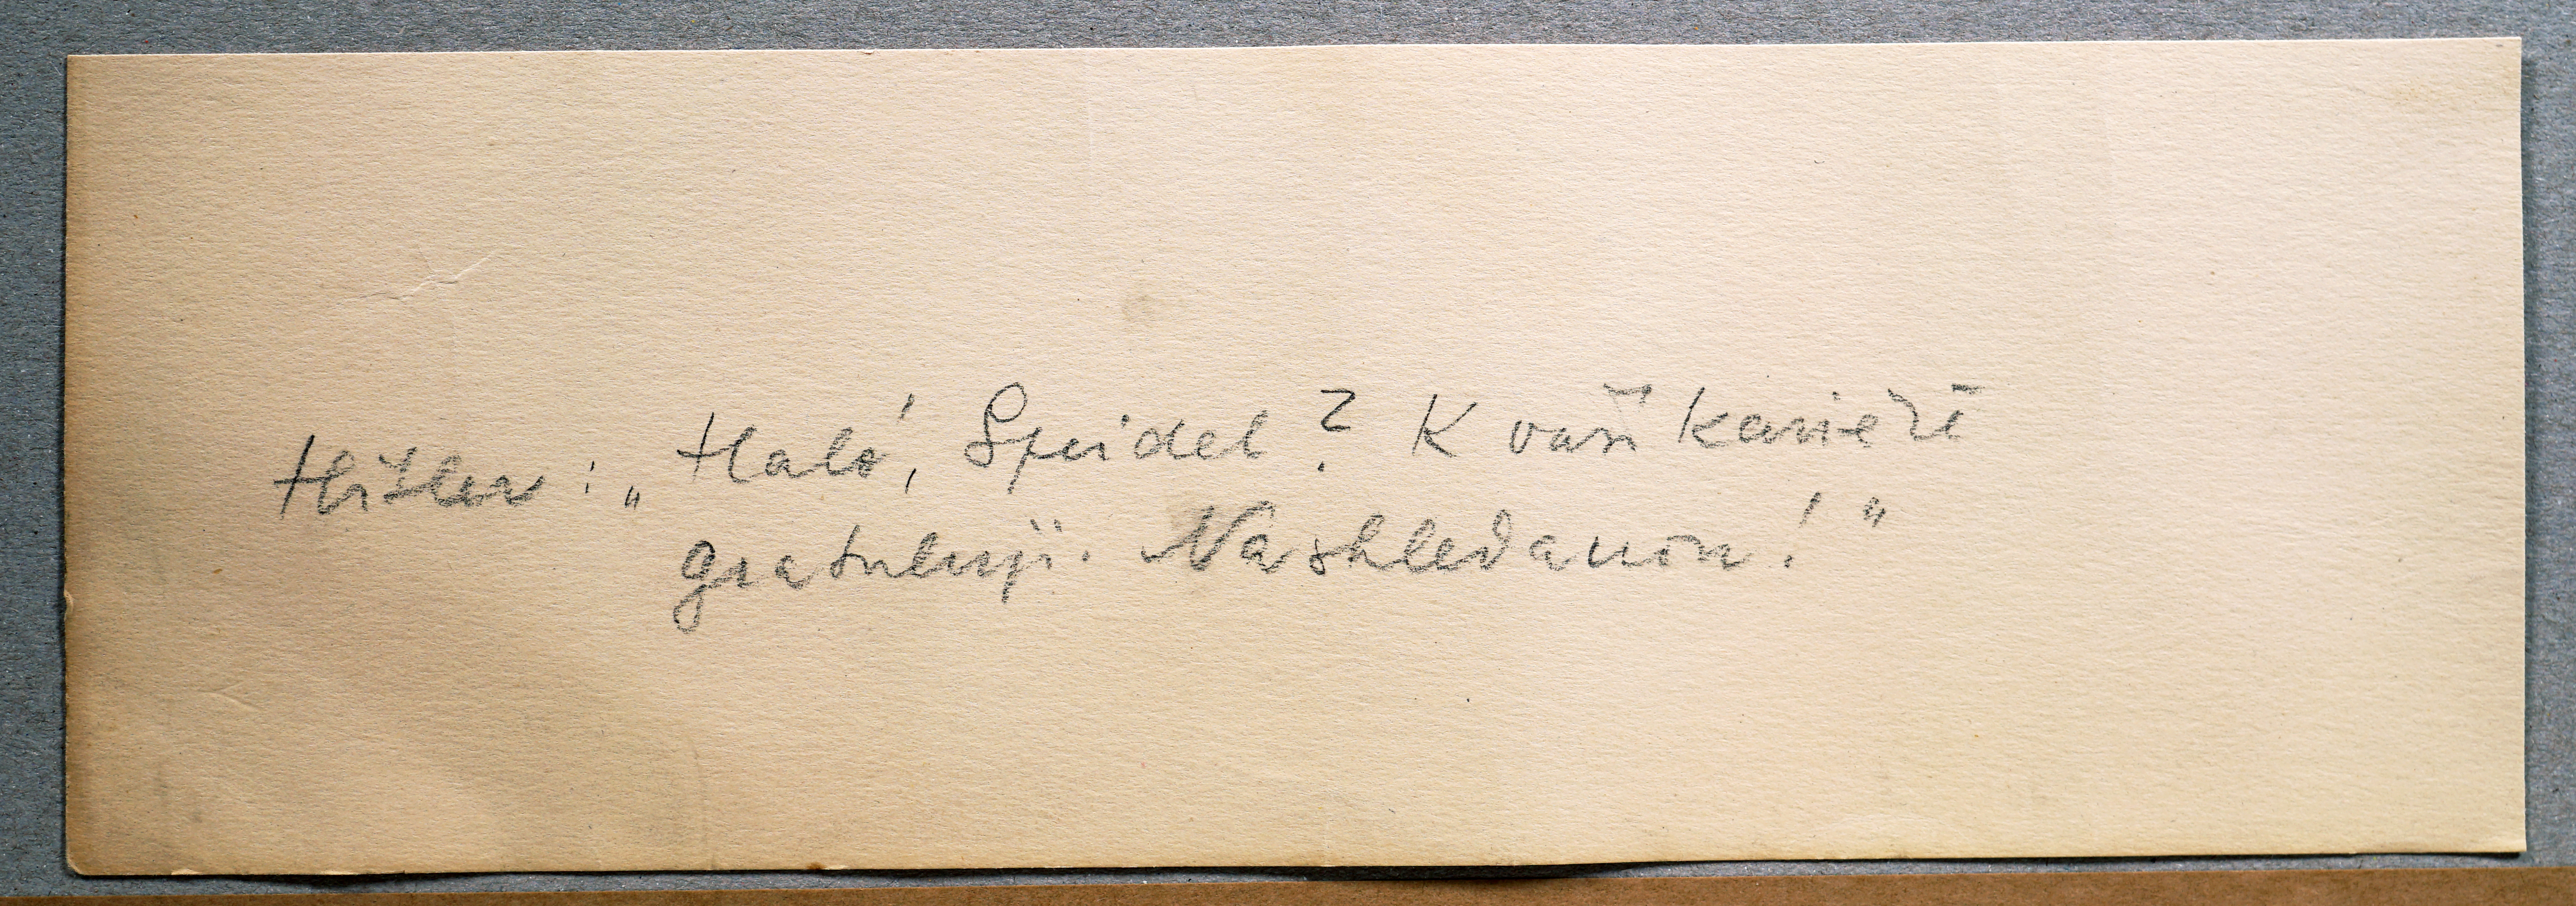 Hitler: „Haló, Speidel? K vaší kariéře
gratuluji. Nashledanou!"